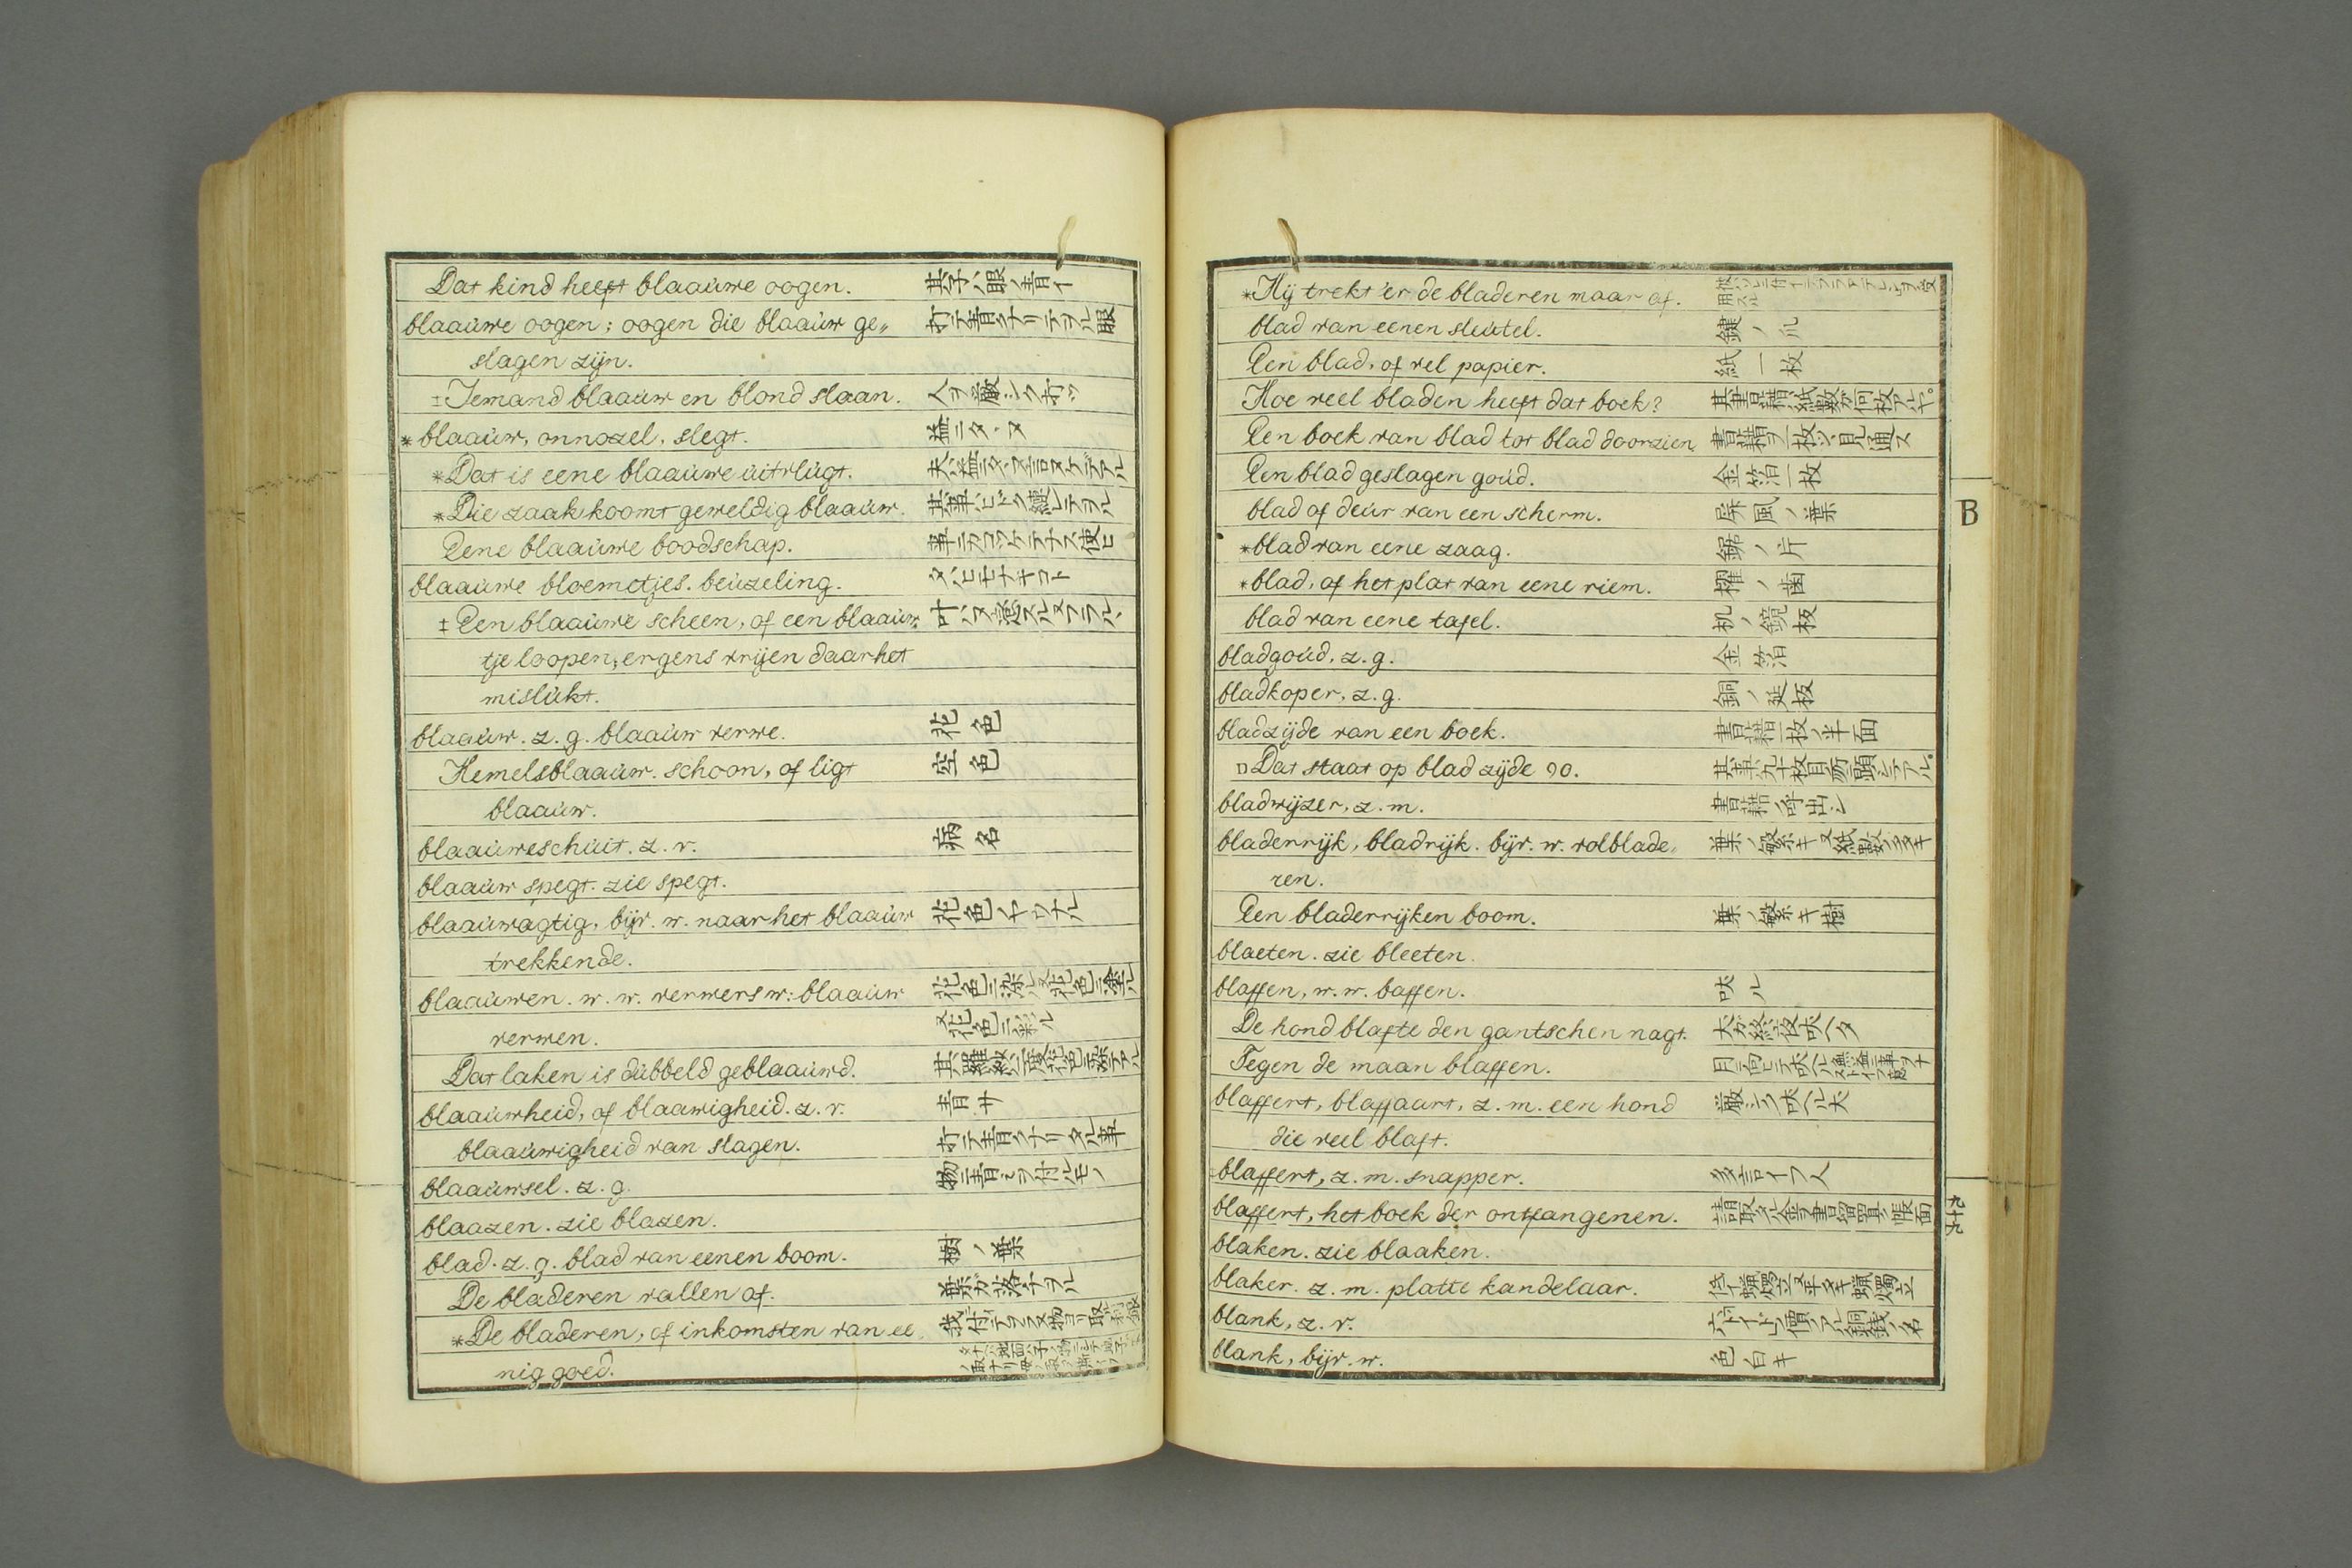 Dat kind heeft blaaùwe oogen. 其子ハ眼ノ青イ
blaaùwe oogen; oogen die blaaùw ge„ 打テ青クナリテヲル眼
slagen zijn.
‡Iemand blaaùw en blond slaan. 人ヲ厳シク打ツ
*blaaùw, onnozel, slegt. 益ニタヽヌ
*Dat is eene blaaùwe ùitvlùgt.
*Die zaak koomt geweldig blaaùw.
Eene blaaùwe boodschap.
blaaùwe bloemetjes. beùzeling.
‡Een blaaùwe scheen, of een blaaùw„
tje loopen, ergens vrijen daar het
mislùkt.
blaaùw. z. g. blaaùw verwe. 花色
Hemelsblaaùw. schoon, of ligt 空色
blaaùw.
blaaùweschùit. z. v. 病名
blaaùw spegt. zie spegt.
blaaùwagtig, bijv. w. naar het blaaùw 花色ノヤウナル
trekkende.
blaaùwen. w. w. verwers w: blaaùw 花色ニ染ル又花色ニ塗ル
verwen. 又花色ニ彩ル
Dat laken is dùbbeld geblaaùwd.
blaaùwheid, of blaawigheid. z. v. 青サ
blaaùwigheid van slagen. 打テ青クナリタル事
blaaùwsel. z. g. 物ニ青ミヲ付ルモノ
blaazen. zie blazen.
blad. z. g. blad van eenen boom. 樹ノ葉
De bladeren vallen af. 葉ガ落チヲル
*De bladeren, of inkomsten van ee„
nig goed.
*Hij trekt 'er de bladeren maar af.
blad van eenen sleùtel. 鍵ノ爪
Een blad, of vel papier. 紙一枚
Hoe veel bladen heeft dat boek? 其書籍ハ紙数ガ何枚アルヤ。
Een boek van blad tot blad doorzien. 書籍ヲ一枚ツヽ見通ス
Een blad geslagen goùd. 金箔一枚
blad of deùr van een scherm. 屏風ノ葉
*blad van eene zaag. 鋸ノ片
*blad, of het plat van eene riem. 櫂ノ歯
blad van eene tafel. 机ノ鏡板
bladgoùd, z. g. 金箔
bladkoper, z. g. 銅ノ延板
bladzijde van een boek. 書籍一枚ノ半面
Dat staat op blad zijde 90.
bladwijzer, z. m. 書籍ノ呼出シ
bladerrijk, bladrijk. bijv. w. volblade„ 葉ノ繁キ又紙数ノ多キ
ren.
Een bladerrijken boom. 葉ノ繁キ樹
blaeten. zie bleeten.
blaffen, w. w. baffen. 吠ル
De hond blafte den gantschen nagt. 犬ガ終夜吠ヘタ
Tegen de maan blaffen.
blaffert, blaffaart, z. m. een hond 厳シク吠ヘル犬
die veel blaft.
‡blaffert, z. m. snapper. 多言イフ人
blaffert, het boek der ontfangenen.
blaken. zie blaaken.
blaker. z. m. platte kandelaar.
blank, z. v.
blank, bijv. w. 色白キ
B
九十九